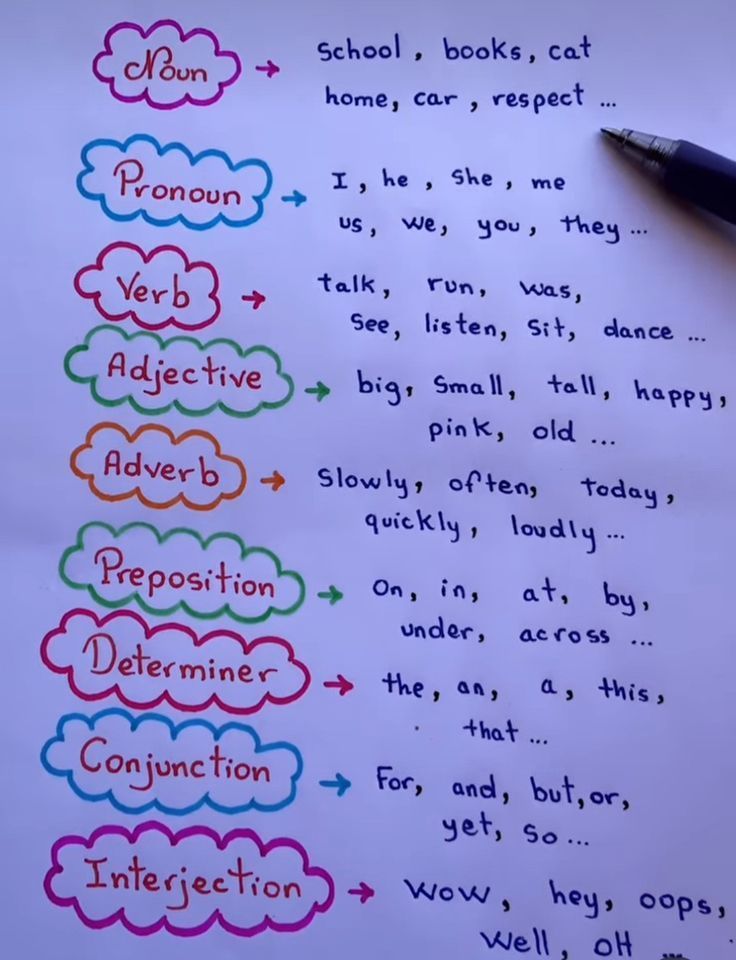 Noun → school, books, cat
home, car, respect ...
Pronoun → I, he, She, me
us, we, you, they ...
Verb → talk, run, was,
See, listen, Sit, dance ...
Adjective → big, Small, tall, happy,
pink, old ...
Adverb → Slowly, often, today,
quickly, loudly ...
Preposition → On, in, at, by,
under, across ...
Determiner → the, an, a, this,
that ...
Conjunction → For, and, but, or,
yet, So ...
Interjection → Wow, hey, oops,
Well, oH ...